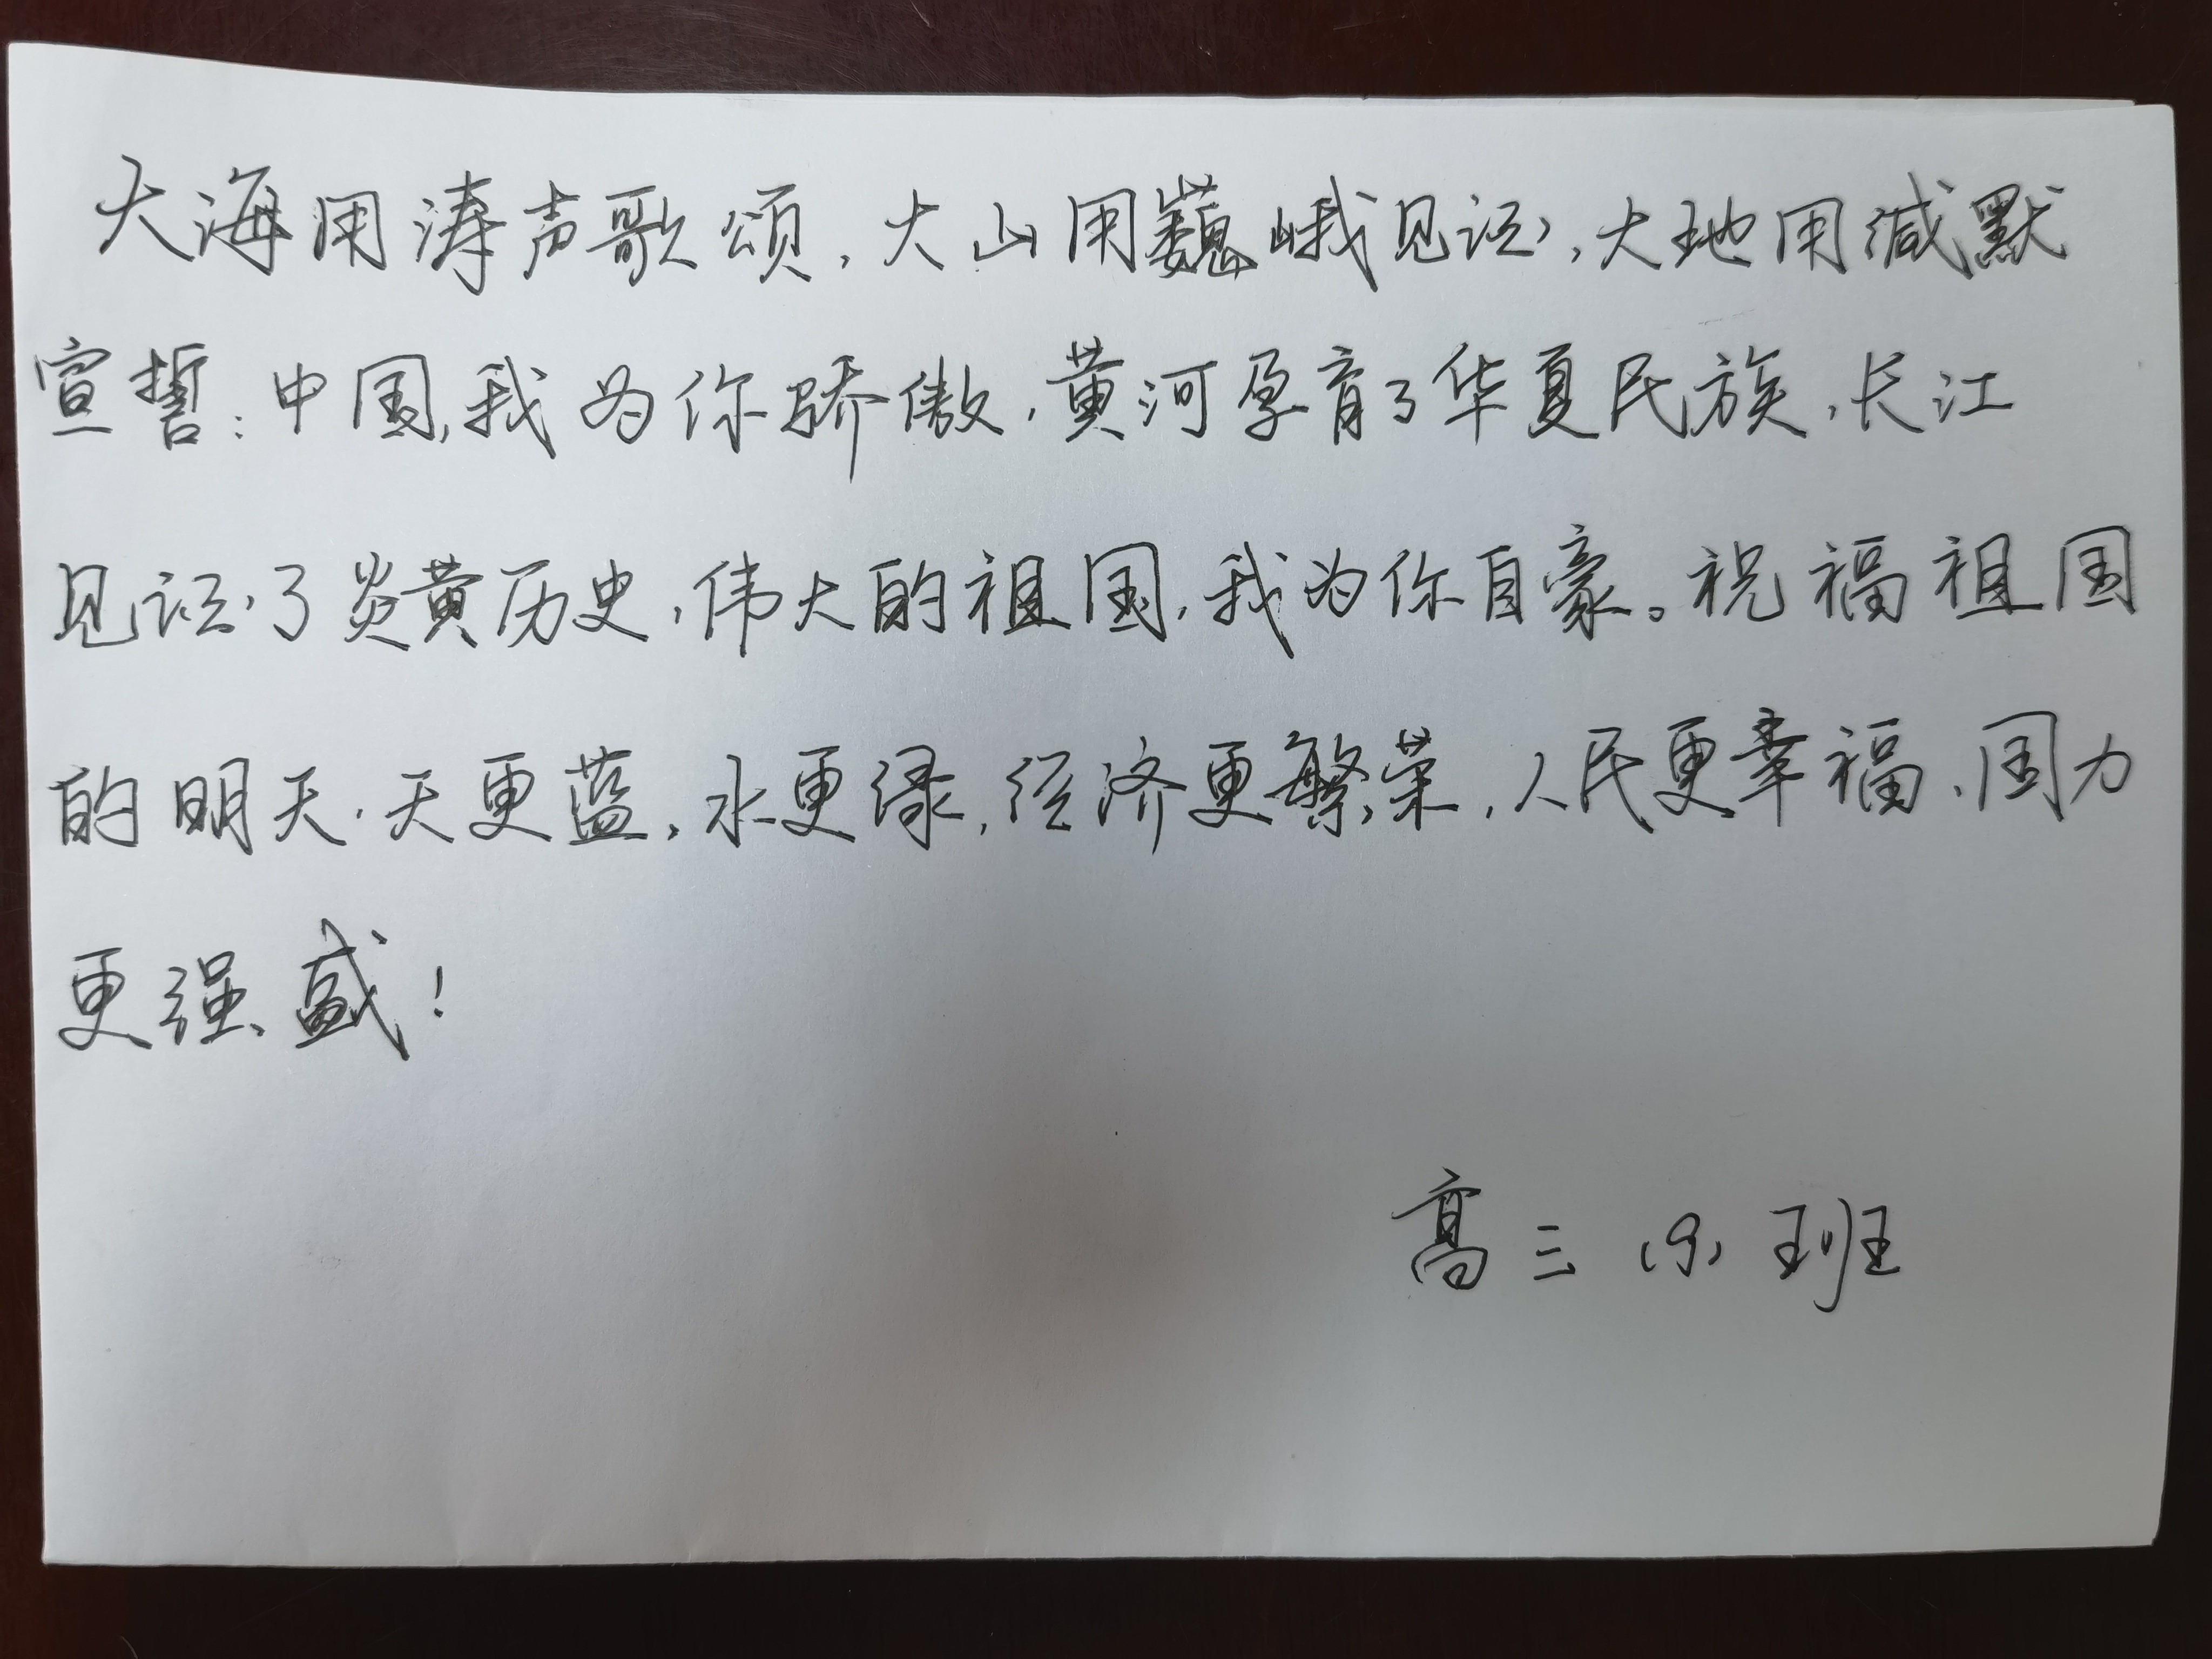 大海用涛声歌颂,大山用巍峨见证,大地用缄默
宣誓:中国,我为你骄傲,黄河孕育了华夏民族,长江
见证了炎黄历史,伟大的祖国,我为你自豪。祝福祖国
的明天,天更蓝,水更绿,经济更繁荣,人民更幸福、国力
更强盛!
高三(9)班